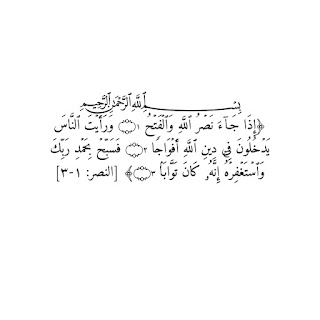 بِسْمِ اللَّهِ الرَّحْمَٰنِ الرَّحِيمِ
﴿إِذَا جَآءَ نَصْرُ اللَّهِ وَالْفَتْحُ ۝١ وَرَأَيْتَ النَّاسَ
يَدْخُلُونَ فِي دِينِ اللَّهِ أَفْوَاجًا ۝٢ فَسَبِّحْ بِحَمْدِ رَبِّكَ
وَاسْتَغْفِرْهُ إِنَّهُۥ كَانَ تَوَّابًا ۝٣﴾ [النصر: ١-٣]